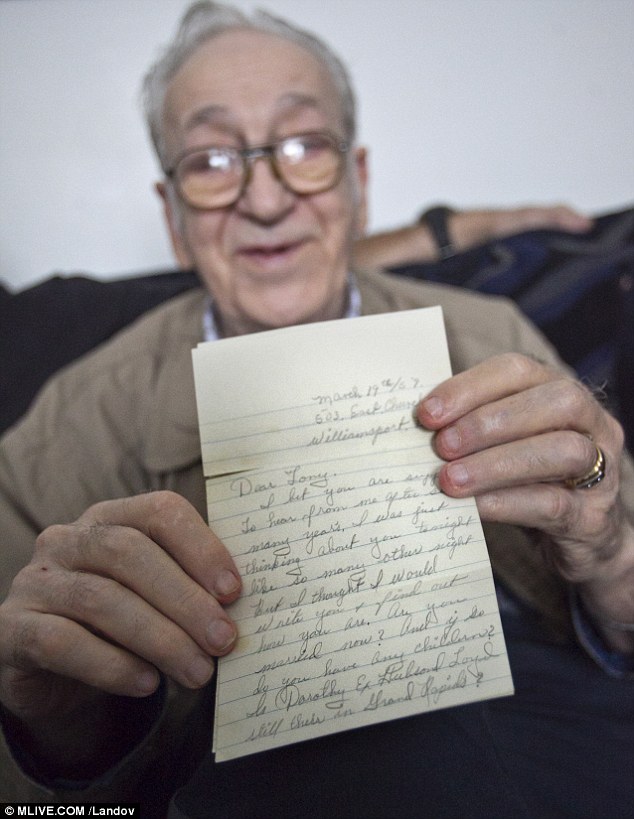 March 19th/07.
502. East
Williamsport
Dear Tony,
I bet you are
To hear from me after
many years, I was just
thinking about you tonight
like so many other night
But I thought I would
write you & find out
how you are. Are you
married now? And if so
do you have any children?
Is Dorothy Ex Husband Loyd
still there in Grand Rapids?
© MLIVE.COM /Landov